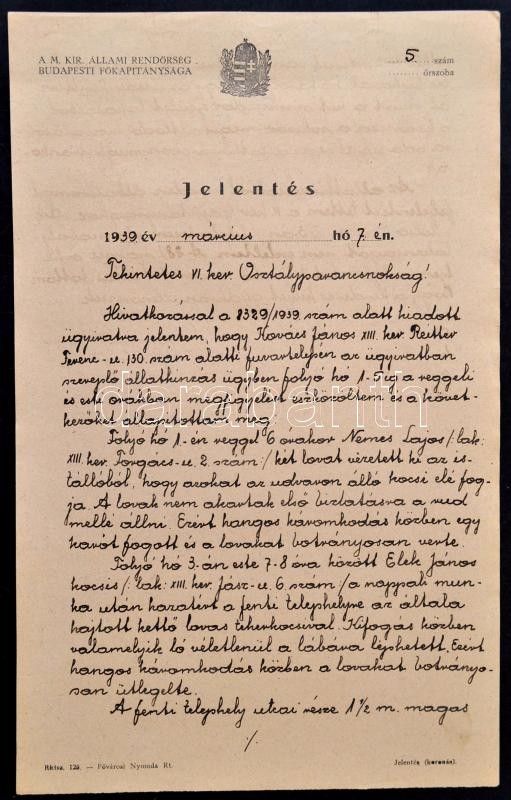 A M. KIR. ÁLLAMI RENDŐRSÉG
BUDAPESTI FŐKAPITÁNYSÁGA
5 szám
őrszoba
Jelentés
1939 év március hó 7 én.
Tekintetes VI. ker. Osztályparancsnokság!
Hivatkozással a 8329/1939 szám alatt kiadott
ügyiratra jelentem, hogy Kovács János XIII. ker. Reitter
Ferenc-u. 130. szám alatti fuvartelepén az ügyiratban
szereplő állatkinzás ügyben folyó hó 1-5ig a reggeli
és esti órákban megfigyelést eszközöltem és a követ-
kezőket állapitottam meg.
Folyó hó 1-én reggel 6 órakor Nemes Lajos /: lak:
XIII. ker. Forgács-u. 2. szám :/ két lovat vezetett ki az is-
tállóból, hogy azokat az udvaron álló kocsi elé fog-
ja. A lovak nem akartak első biztatásra a rud
mellé állni. Ezért hangos káromkodás közben egy
karót fogott és a lovakat botrányosan verte.
Folyó hó 3.-án este 7-8 óra között Elek János
kocsis /: lak: XIII. ker. Jász-u. 6 szám :/ a nappali mun-
ka után hazatért a fenti telephelyre az általa
hajtott kettő lovas teherkocsival. Kifogás közben
valamelyik ló véletlenül a lábára léphetett. Ezért
hangos káromkodás közben a lovakat botrányo-
san ütlegelte.
A fenti telephely utcai része 1 1/2 m. magas
./.
Rktsz. 125. — Fővárosi Nyomda Rt.
Jelentés (koronás).
darabanth